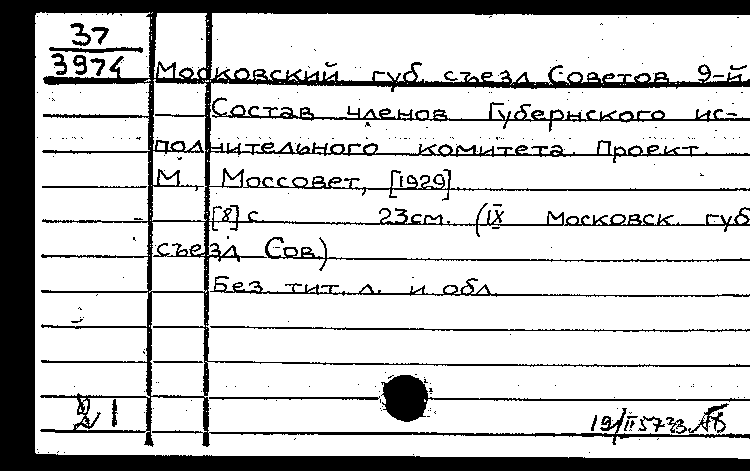 37
3974
Московский губ. съезд Советов, 9-й
Состав членов Губернского ис-
полнительного комитета. Проект.
М., Моссовет, [1929]
[8] с. 23см. (IX Московск. губ.
съезд Сов.)
Без тит. л. и обл.
21